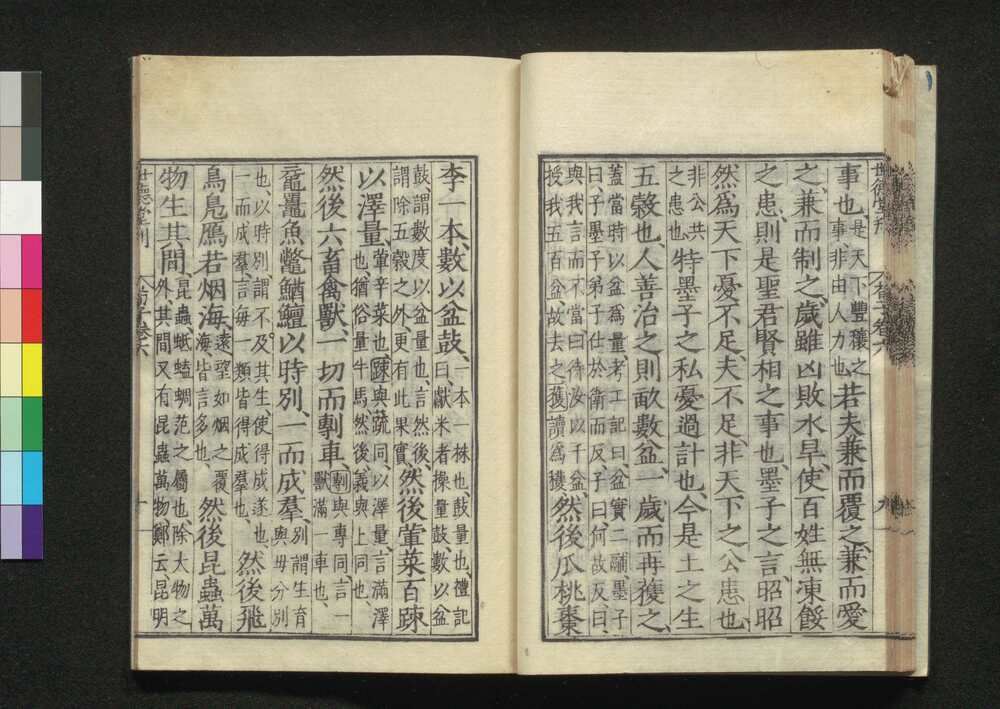 事也是天下豐穰之
事非由人力也若夫兼而覆之兼而愛
之兼而制之歲雖凶敗水旱使百姓無凍餒
之患則是聖君賢相之事也墨子之言昭昭
然爲天下憂不足夫不足非天下之公患也
非公共
之患也特墨子之私憂過計也今是土之生
五穀也人善治之則畝數盆一歲而再獲之
蓋當時以盆爲量考工記曰盆實二鬴墨子
曰子墨子弟子仕於衞而反子曰何故反曰
與我言而不當曰待汝以千盆
授我五百盆故去之獲讀爲穫然後瓜桃棗
李一本數以盆鼓一本一株也鼓量也禮記
曰獻米者操量鼓數以盆
鼓謂數度以盆量也言然後
謂除五穀之外更有此果實然後葷菜百疎
以澤量葷辛菜也疎與蔬同以澤量言滿澤
也猶俗量牛馬然後義與上同也
然後六畜禽獸一切而剸車剸與專同言一
獸滿一車也
黿鼉魚鼈鰌鱣以時別一而成羣別謂生育
與毋分別
也以時別謂不及其生使得成遂也
一而成羣言每一類皆得成羣也然後飛
鳥鳧鴈若烟海遠望如烟之覆
海皆言多也然後昆蟲萬
物生其間昆蟲蚳蜩范之屬也除大物之
外其間又有昆蟲萬物鄭云昆明
世德堂刊
荀子卷六
十